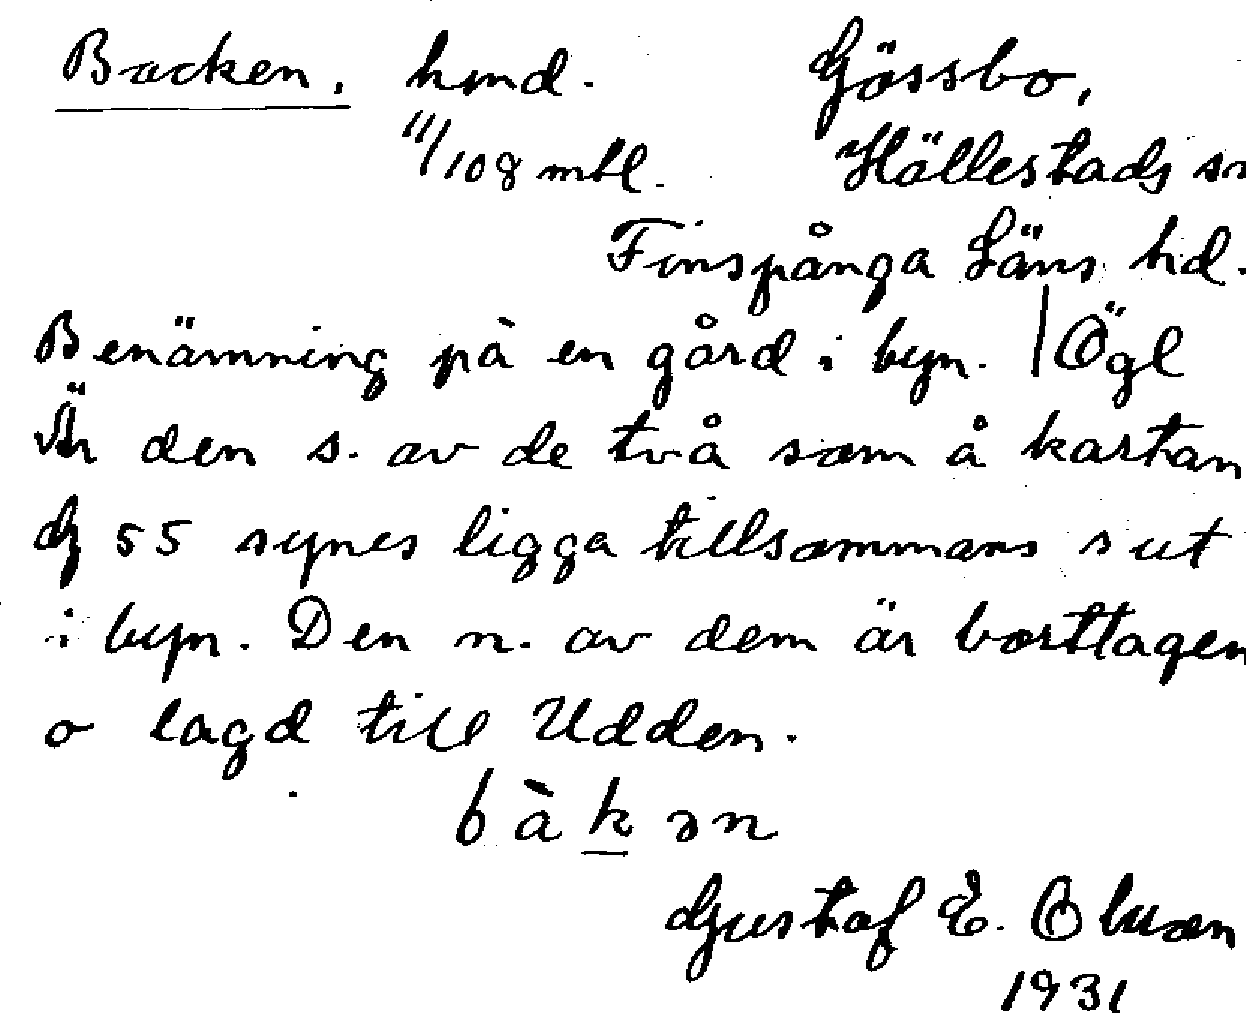 Backen. hmd. Gössbo,
11/108 mtl. Hällestads sn
Finspånga Läns hd.
Benämning på en gård i byn. | Ögl
Är den s. av de två som å kartan
G 55 synes ligga tillsammans s ut
i byn. Den n. av dem är borttagen
o lagd till Udden.
bàkən
Gustaf E. Olsson
1931